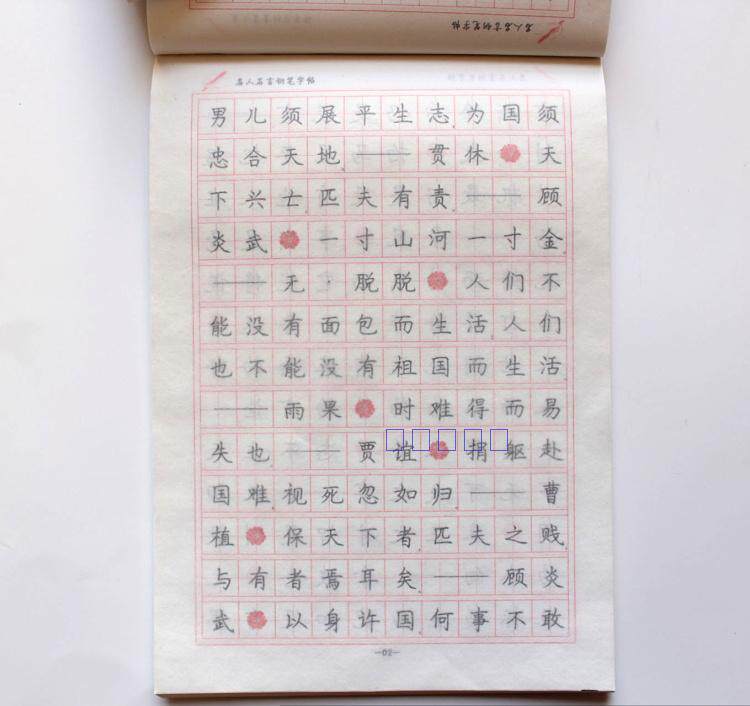 名人名言钢笔字帖
名人名言钢笔字帖
男儿须展平生志为国须
忠合天地——贯休 天
下兴亡匹夫有责 顾
炎武 一寸山河一寸金
——无 脱脱 人们不
能没有面包而生活人们
也不能没有祖国而生活
——雨果 时难得而易
失也——贾谊 捐躯赴
国难视死忽如归——曹
植 保天下者匹夫之贱
与有者焉耳矣——顾炎
武 以身许国何事不敢
—02—